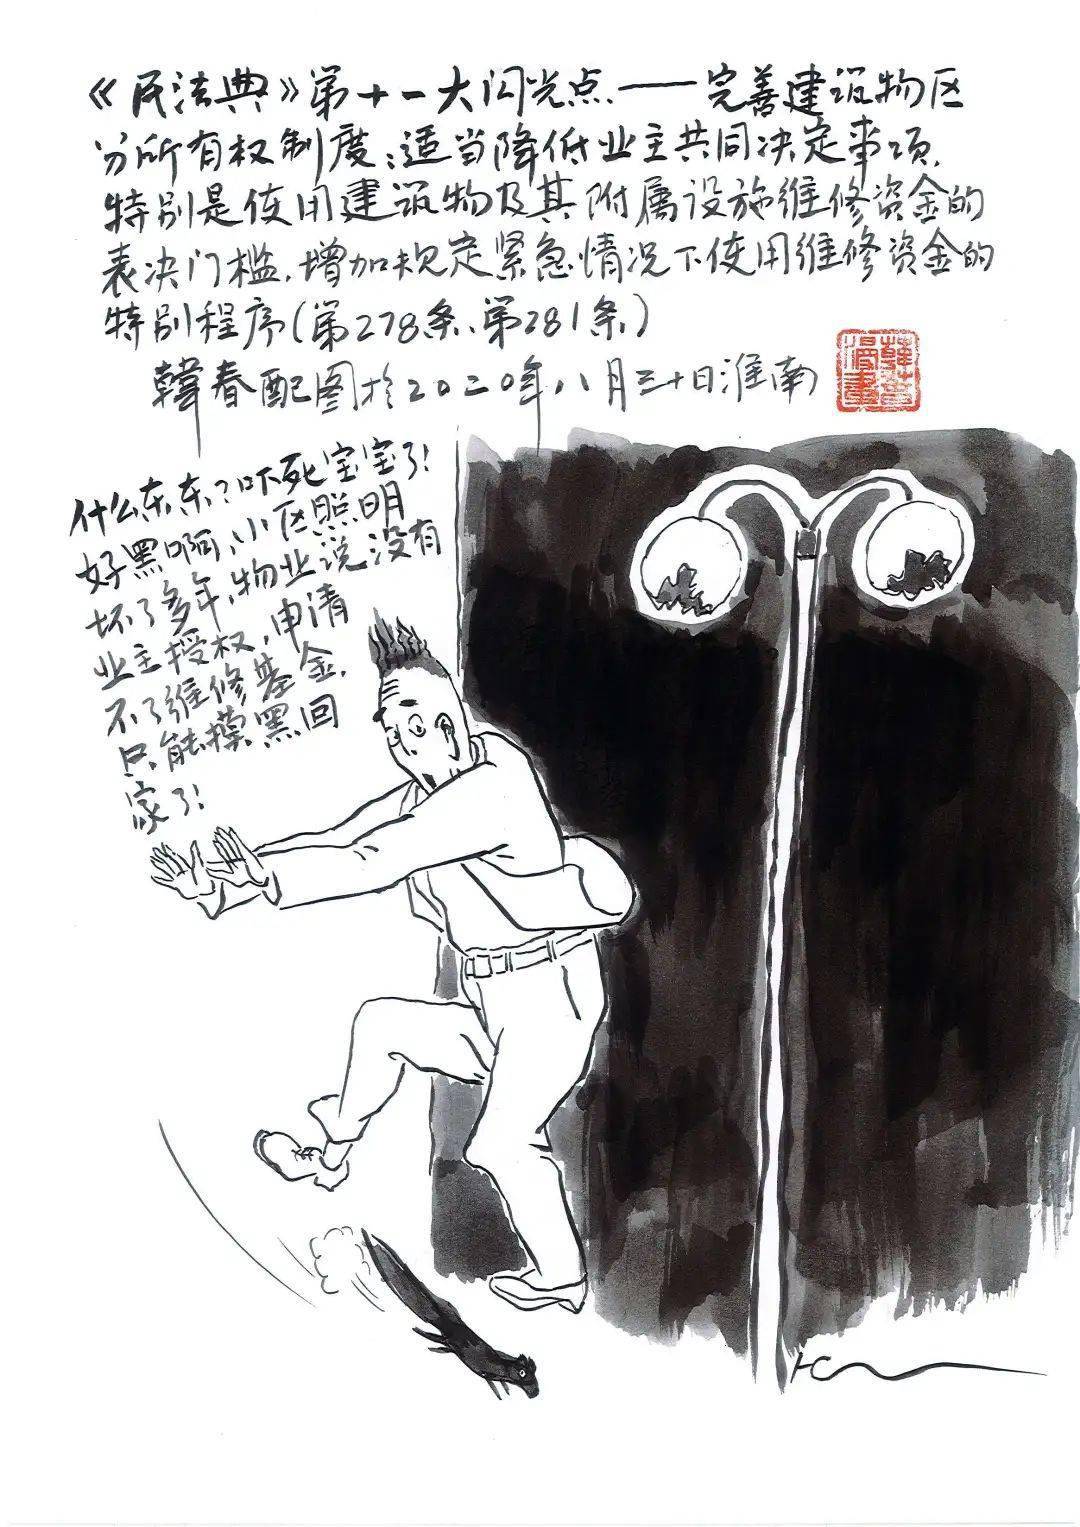 《民法典》第十一大闪光点——完善建筑物区
分所有权制度:适当降低业主共同决定事项,
特别是使用建筑物及其附属设施维修资金的
表决门槛,增加规定紧急情况下使用维修资金的
特别程序(第278条、第281条)
韓春配图于2020年八月三十日淮南
韓春漫畫
什么东东?吓死宝宝了!
好黑啊,小区照明
坏了多年,物业说没有
业主授权,申请
不了维修基金,
只能摸黑回
家了!
HC